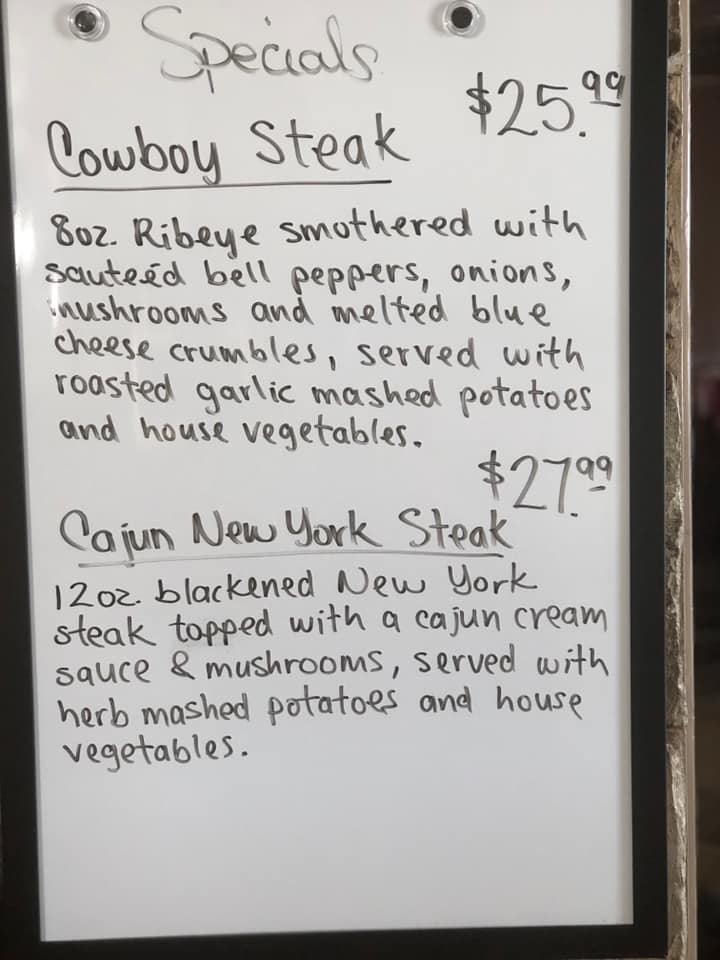 Specials
$25.99
Cowboy Steak
8oz. Ribeye smothered with
sauteéd bell peppers, onions,
mushrooms and melted blue
cheese crumbles, served with
roasted garlic mashed potatoes
and house vegetables.
$27.99
Cajun New York Steak
12oz. blackened New York
steak topped with a cajun cream
sauce & mushrooms, served with
herb mashed potatoes and house
vegetables.